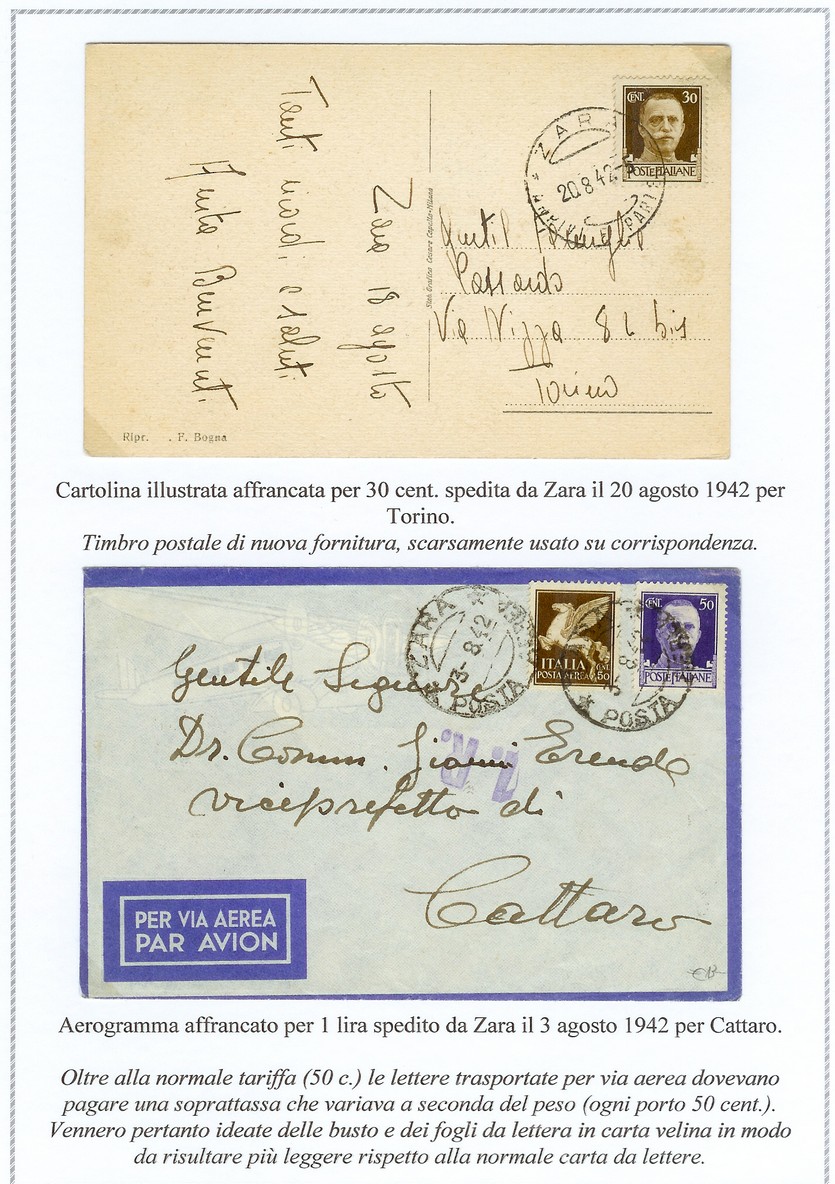 CENT. 30
POSTE ITALIANE
ZARA
20.8.42
Tanti ricordi e saluti
Anita Benvenuti
Zara 18 agosto
Stab. Grafico Cesare Capello-Milano
Via Nizza 82 bis
Torino
Ripr. . F. Bogna
Cartolina illustrata affrancata per 30 cent. spedita da Zara il 20 agosto 1942 per
Torino.
Timbro postale di nuova fornitura, scarsamente usato su corrispondenza.
ZARA
3-8.42
POSTA
ITALIA
POSTA AEREA CENT. 50
CENT. 50
POSTE ITALIANE
POSTA
Gentile Signore
Dr. Comm. Gianni
viceprefetto di
Cattaro
PER VIA AEREA
PAR AVION
Aerogramma affrancato per 1 lira spedito da Zara il 3 agosto 1942 per Cattaro.
Oltre alla normale tariffa (50 c.) le lettere trasportate per via aerea dovevano
pagare una soprattassa che variava a seconda del peso (ogni porto 50 cent.).
Vennero pertanto ideate delle busto e dei fogli da lettera in carta velina in modo
da risultare più leggere rispetto alla normale carta da lettere.